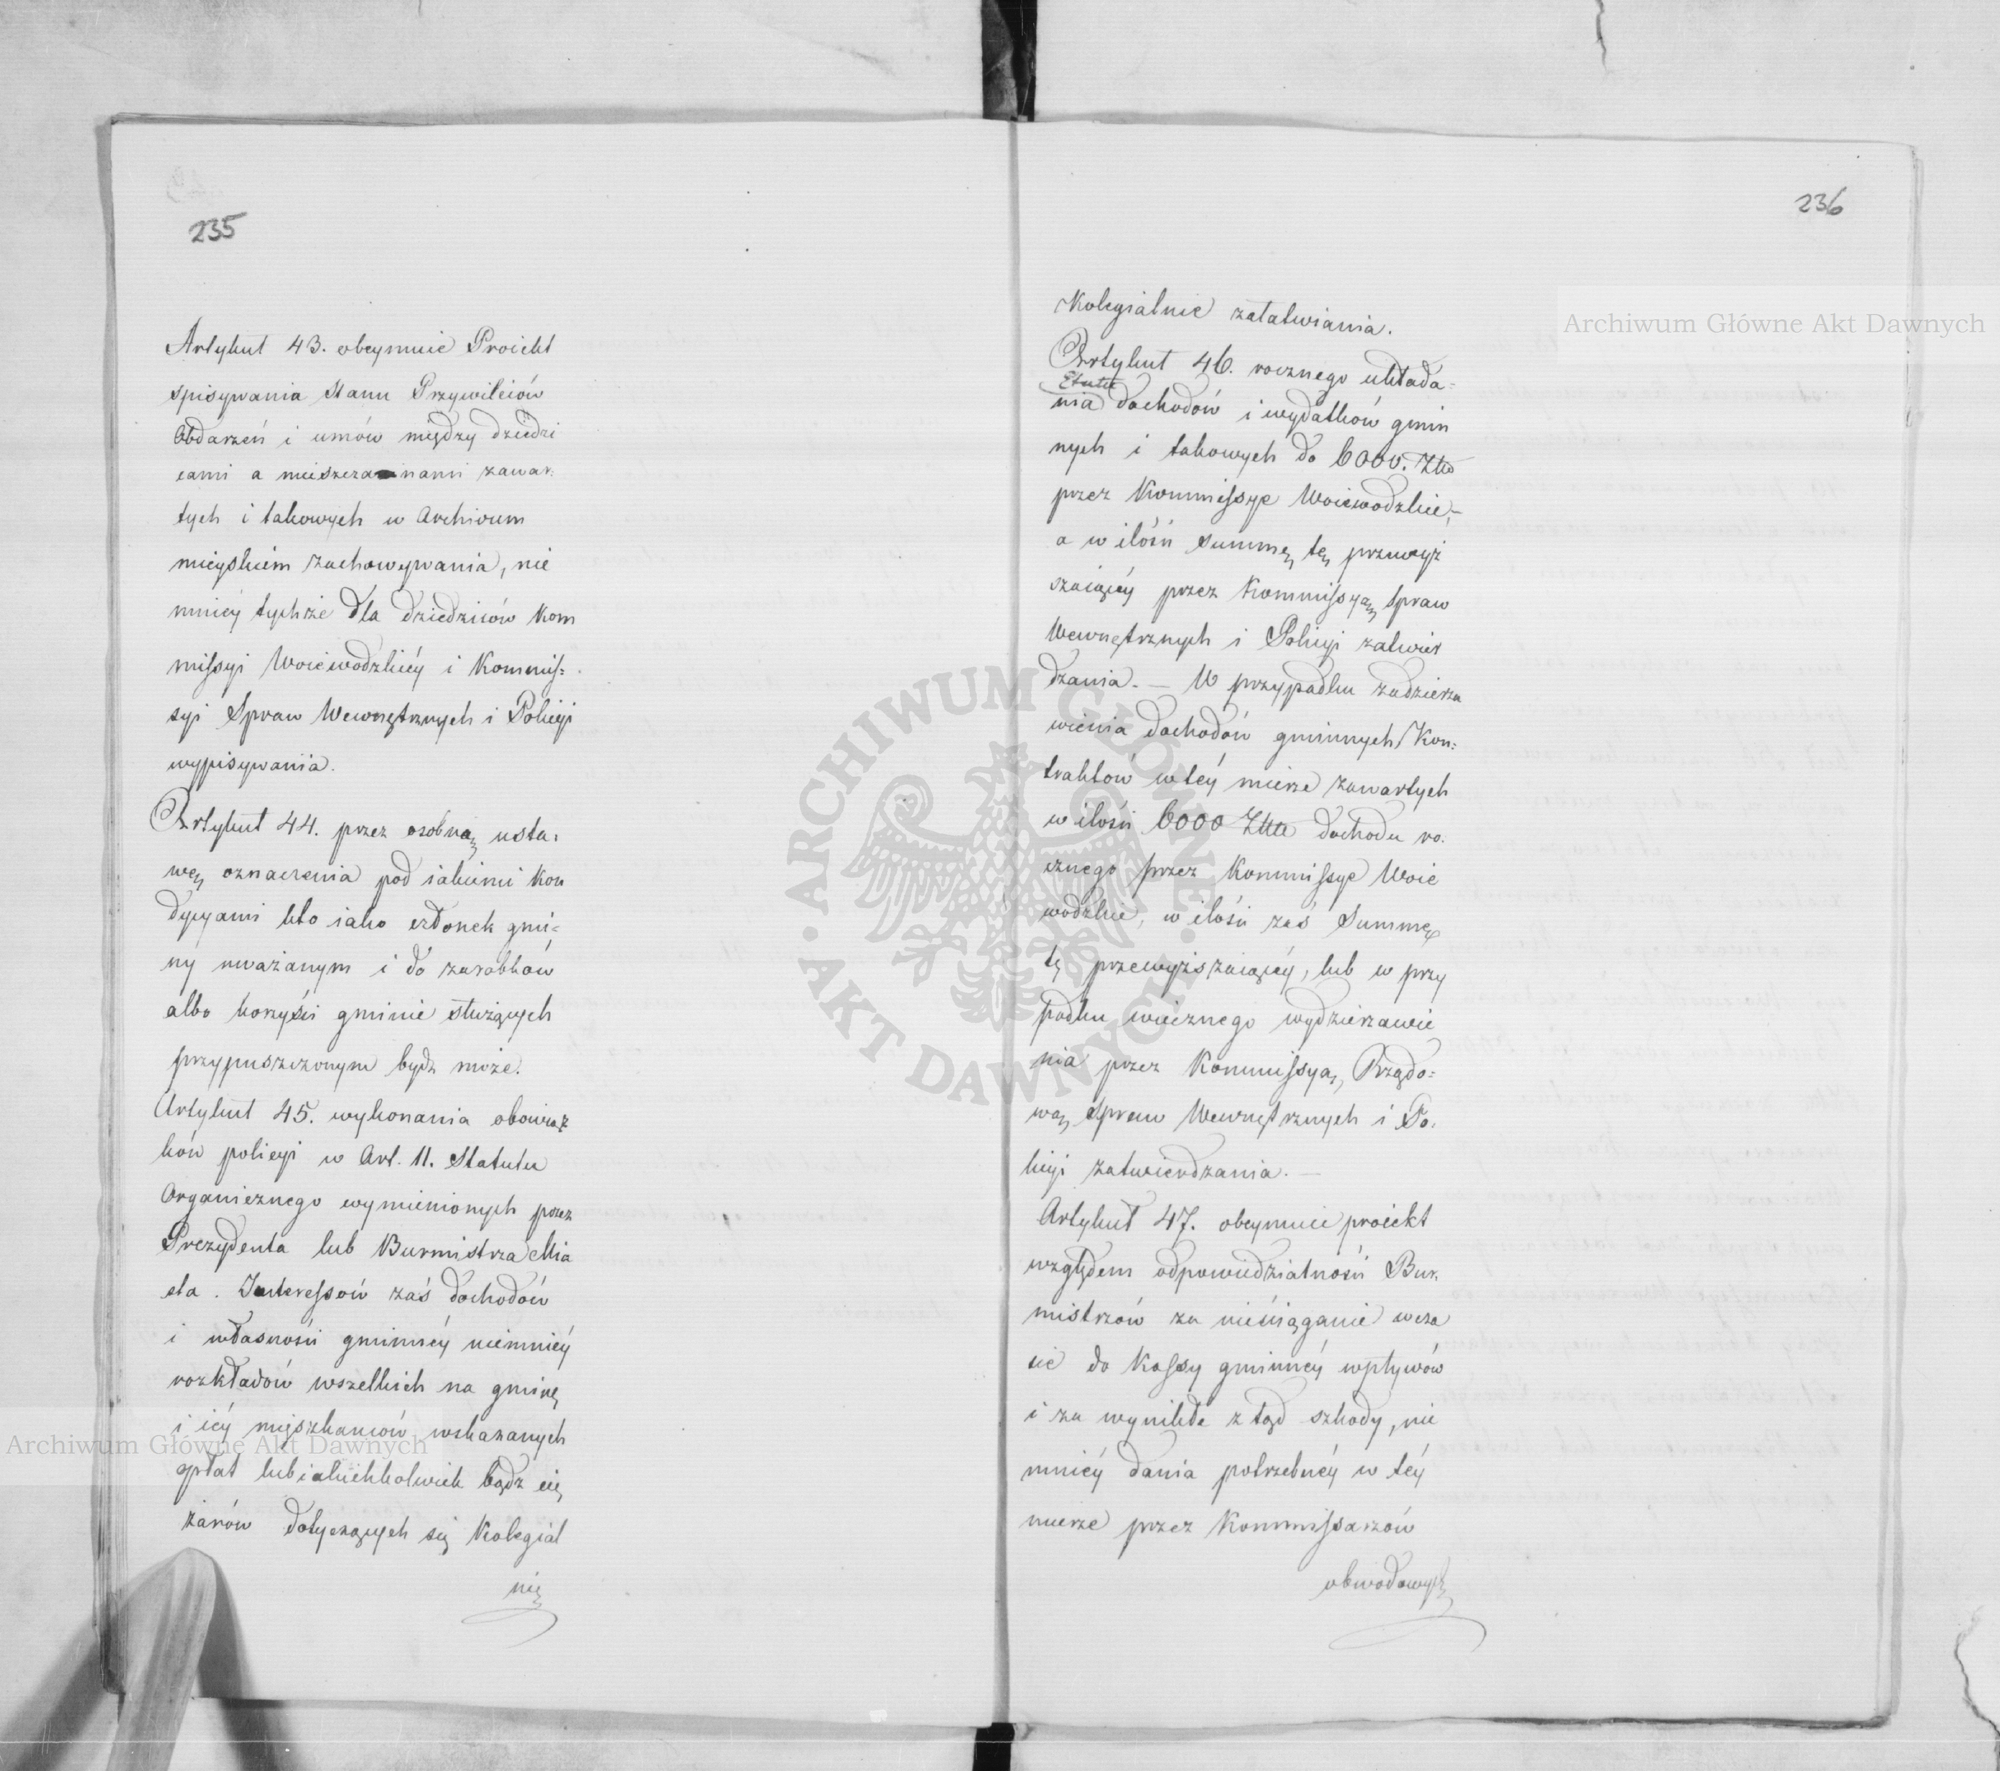 235
Artykuł 43. obeymuie Proiekt
spisywania Stanu Przywileiów
Obdarzeń i umów między dziedzi
cami a mieszczaninami zawar-
tych i takowych w Archivum
mieyskiem zachowywania, nie
mniéy tychże dla dziedziców Kom
missyi Woiewodzkiéy i Kommis=
syi Spraw Wewnętrznych i Policyi
wypisywania.
Artykuł 44. przez osobną usta-
wę oznaczenia pod iakiemi kon
dycyami kto iako członek gmi=
ny uważanym i do zarobków
albo korzyści gminie służących
przypuszczonym bydz może.
Artykuł 45. wykonania obowiąz
ków policyi w Art. 11. Statutu
Organicznego wymienionych przez
Prezydenta lub Burmistrza Mia
sta. Interessów zaś dochodów
i własności gminnéy niemniéy
rozkładów wszelkich na gminę
i iéy mieszkańców wskazanych
opłat lub iakichkolwiek bądz cię
żarów dotyczących się Kolegial
nie
236
Kolegialnie załatwiania.
Artykuł 46. rocznego układa=
Etatu
nia dochodów i wydatków gmin
nych i takowych do 6000. Złł
przez Kommissye Woiewodzkie,
a w ilości summę tę przewyż
szaiącéy przez Kommissyą Spraw
Wewnętrznych i Policyi zatwier
dzania. — W przypadku zadzierża
wienia dochodów gminnych Kon=
traktów w téy mierze zawartych
w ilości 6000 Złł dochodu ro-
cznego przez Kommissye Woie
wodzkie, w ilości zaś Summę
tę przewyższaiącéy, lub w przy
padku wiecznego wydzierzawie
nia przez Kommissyą Rządo=
wą Spraw Wewnętrznych i Po-
licyi zatwierdzania. —
Artykuł 47. obeymuie proiekt
względem odpowiedzialności Bur-
mistrzów za nieściąganie w cza
sie do Kassy gminnéy wpływów
i za wynikłe z tąd szkody, nie
mniéy dania potrzebnéy w téy
mierze przez Kommissarzów
obwodowych
Archiwum Główne Akt Dawnych
Archiwum Główne Akt Dawnych
ARCHIWUM GŁÓWNE · AKT DAWNYCH ·